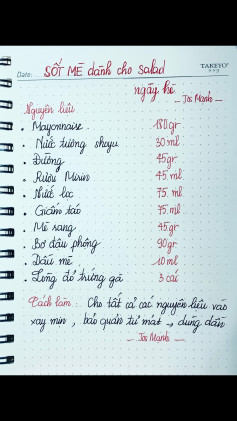 SỐT MÈ dành cho salad
Date:
TAKEYO
ngày hè
Jos Manks
Nguyên liệu
. Mayonnaise 180gr
. Nước tương shoyu 30ml
. Đường 45gr
. Rượu Mirin 45ml
. Nước lọc 75 ml
. Giấm táo 75 ml
. Mè rang 45gr
. Bơ đậu phộng 90gr
. Dầu mè 10ml
. Lòng đỏ trứng gà 3 cái
Cách làm: Cho tất cả các nguyên liệu vào
xay mịn, bảo quản tủ mát → dùng dần
— Jos Manks —